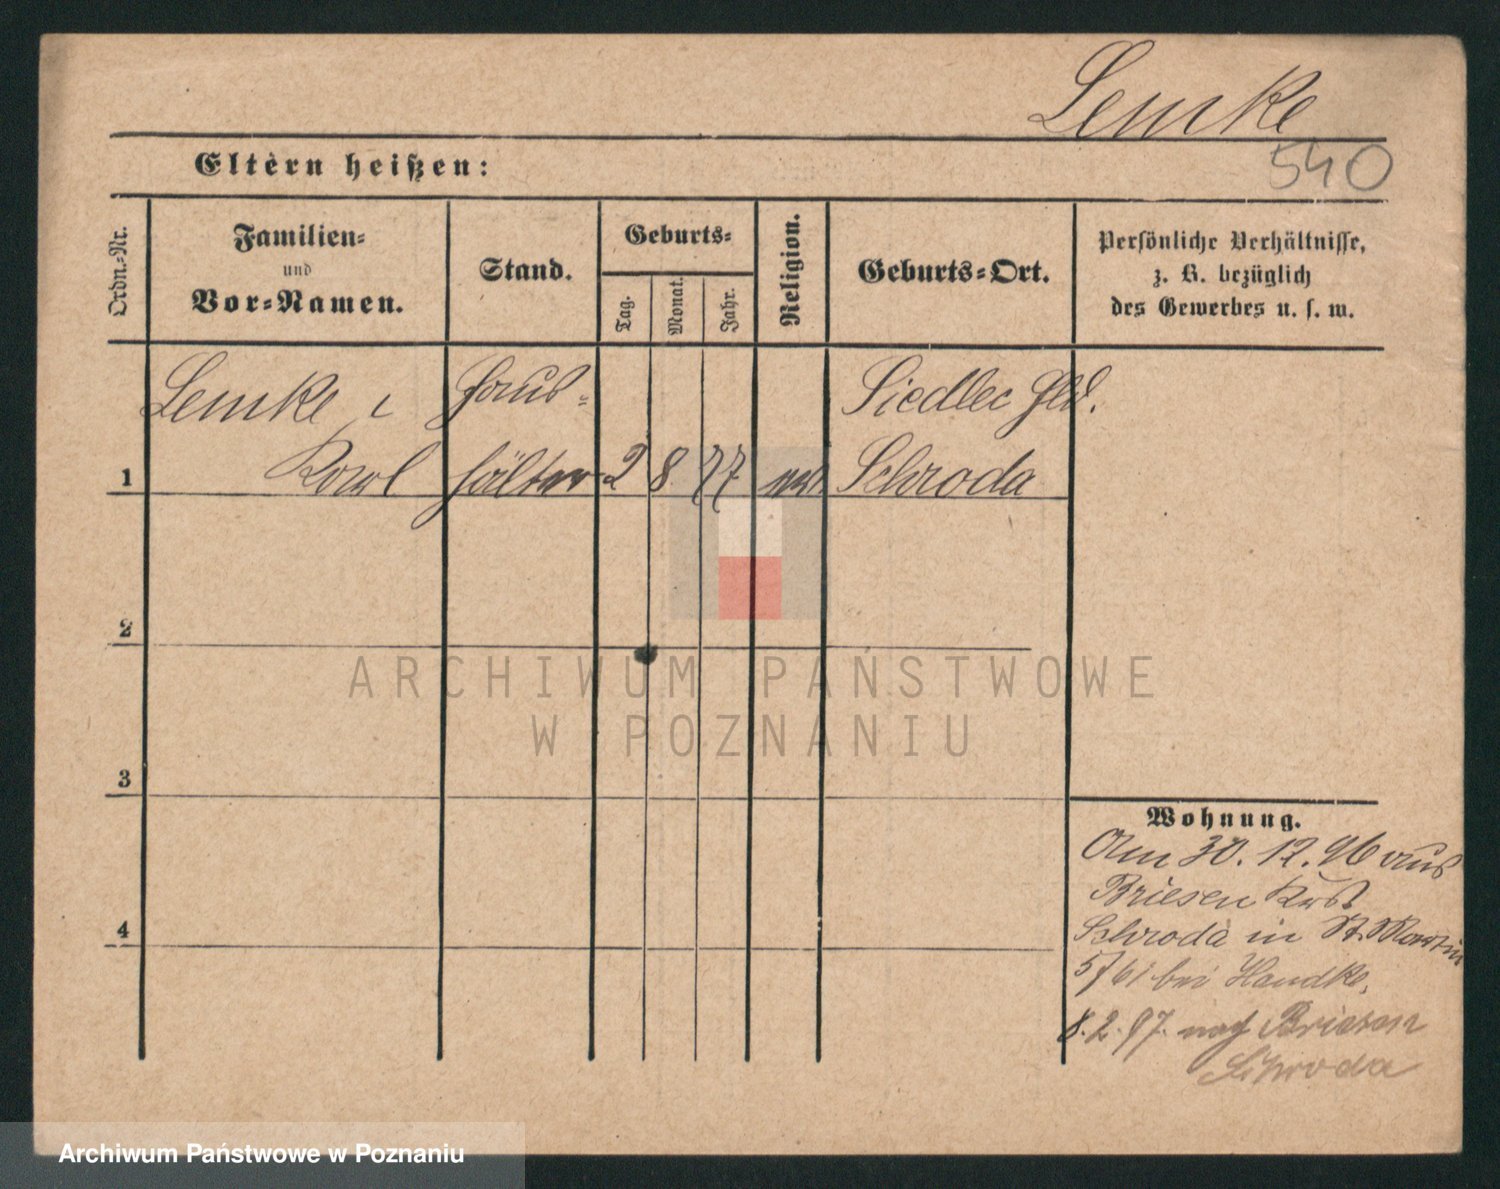 Lemke
540
Eltern heißen:
Ordn.-Nr.
Familien-
und
Vor-Namen.
Stand.
Geburts-
Tag.
Monat.
Jahr.
Religion.
Geburts-Ort.
Persönliche Verhältnisse,
z. B. bezüglich
des Gewerbes u. s. w.
Lemke, Haus- Siedlec Hld.
1 Karl hälter 2 8 77 Schroda
2
3
4
Wohnung.
Am 30. 12. 96 aus
Briesen
Schroda in St. Martin
5/61 bei Handke,
8. 2. 97. nach Briesen
Schroda
ARCHIWUM PAŃSTWOWE
W POZNANIU
Archiwum Państwowe w Poznaniu